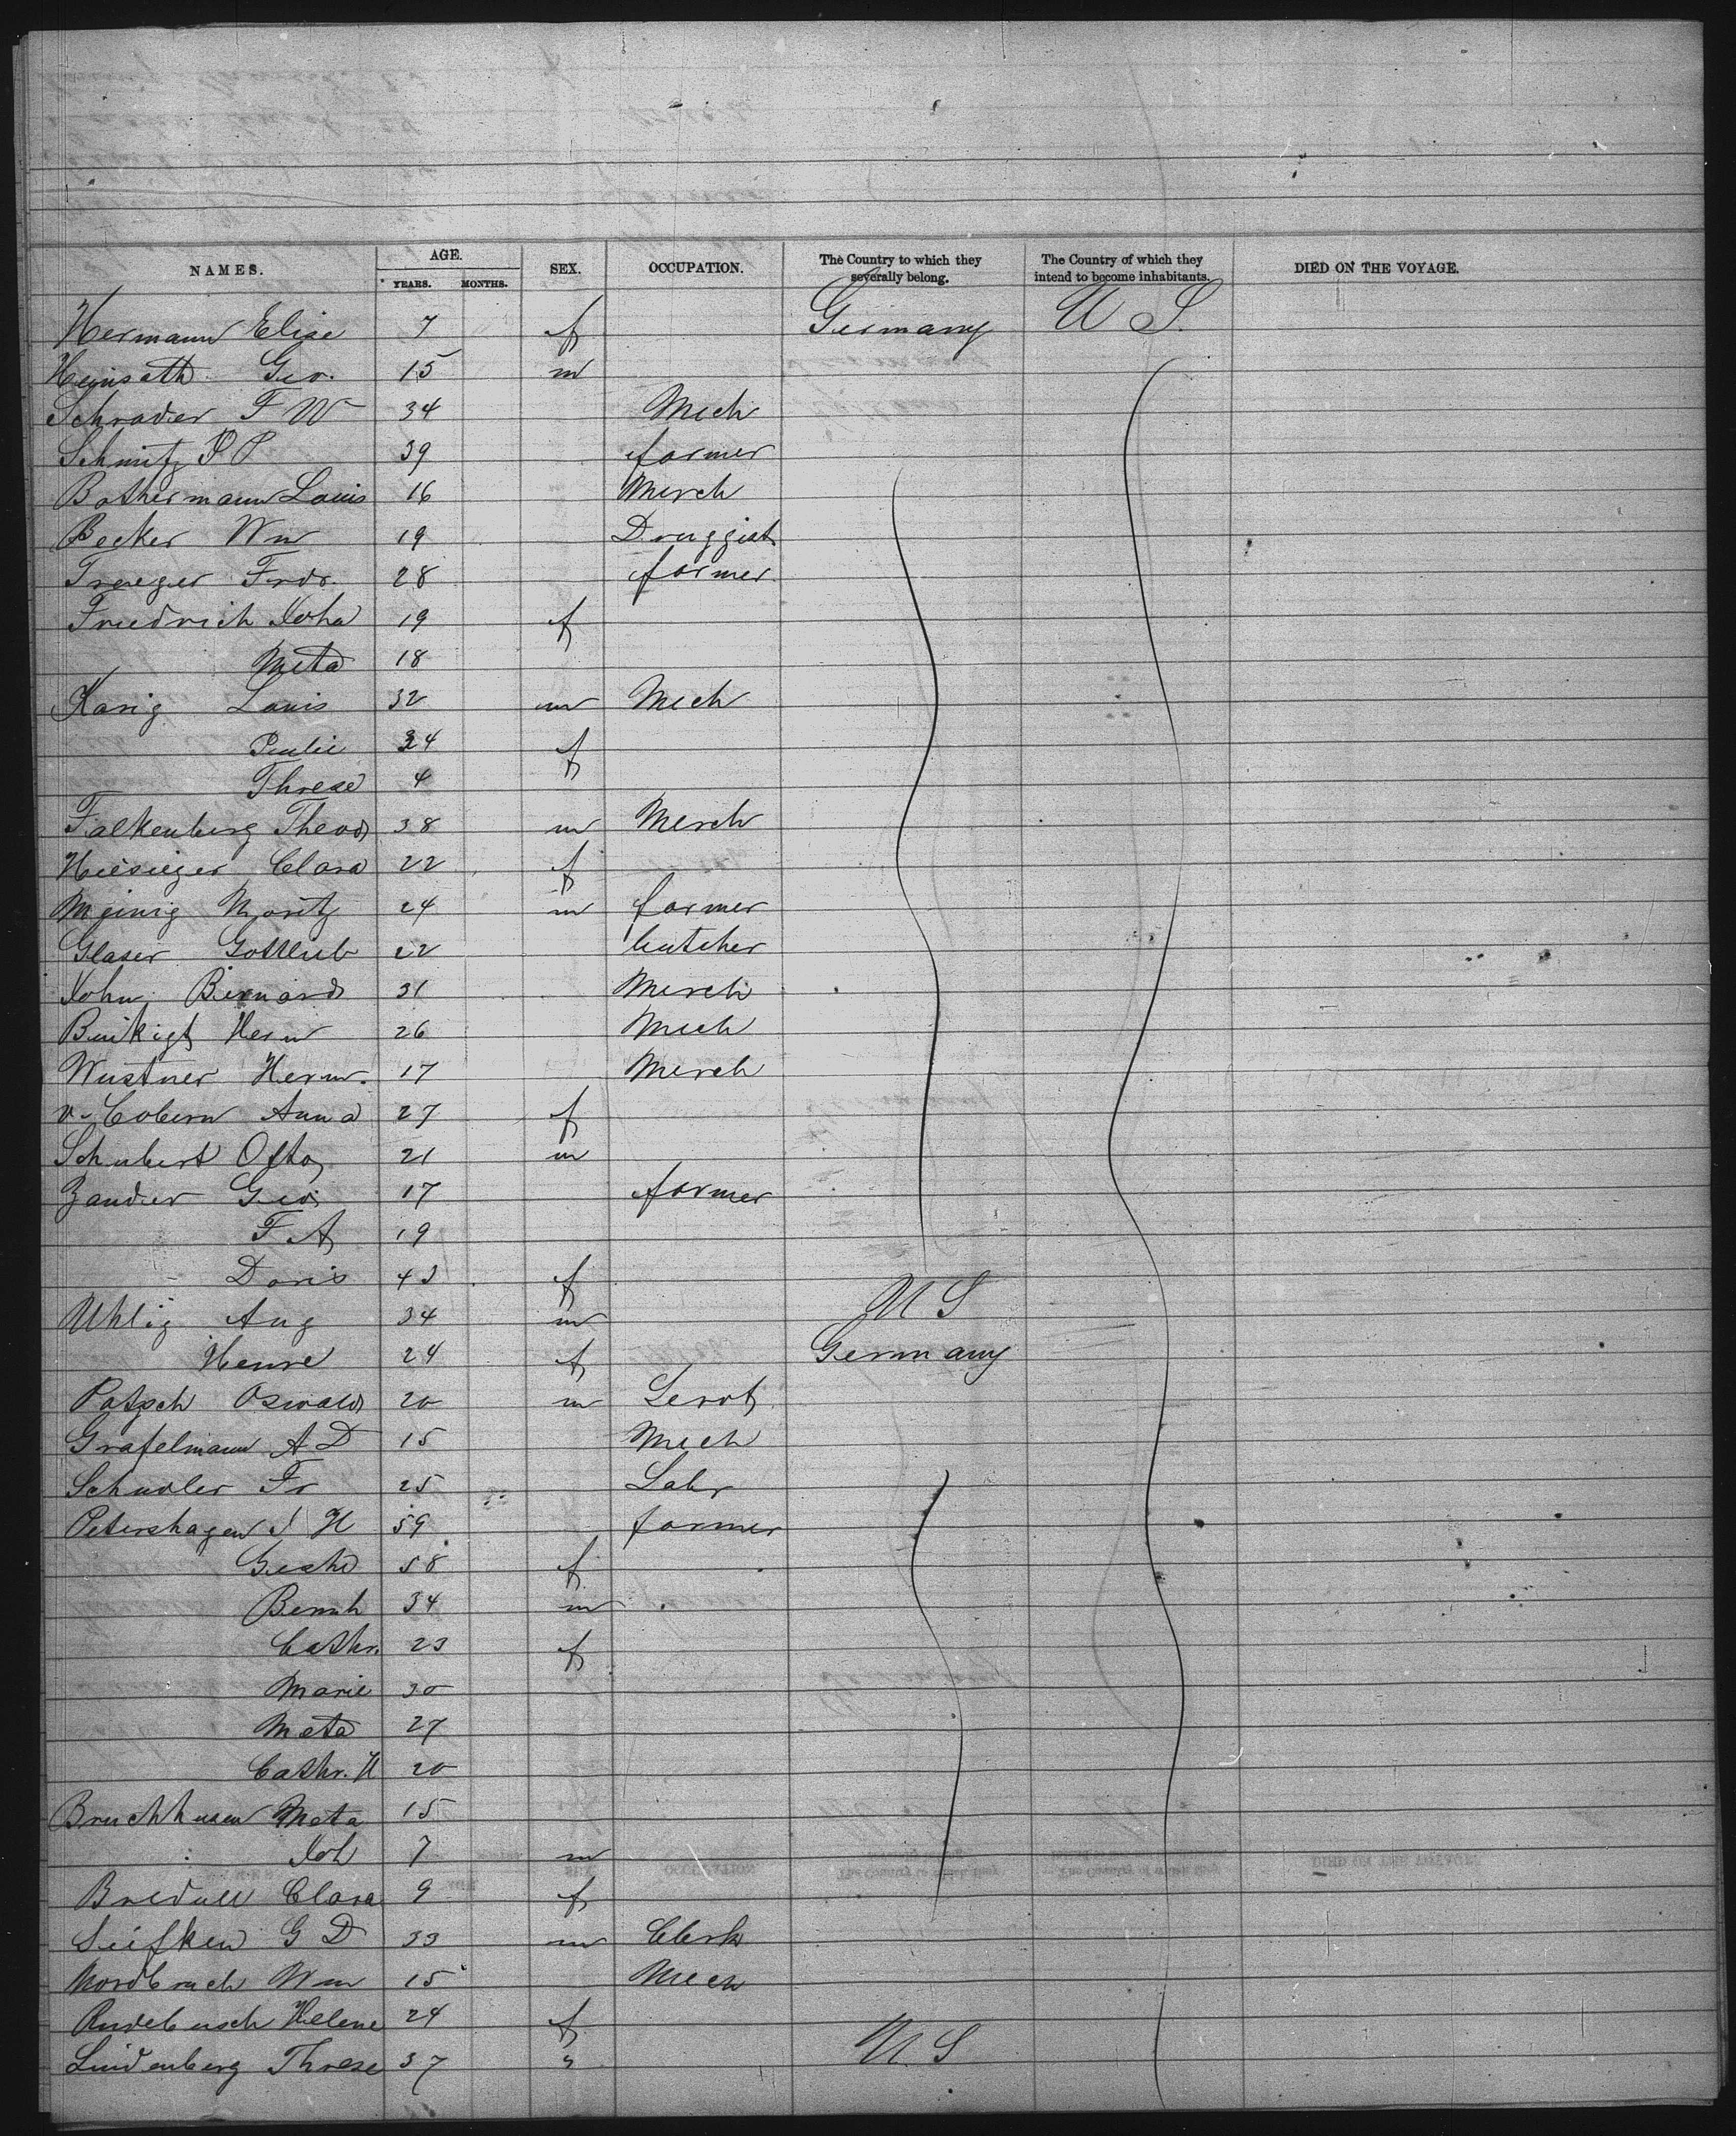 NAMES. AGE. SEX. OCCUPATION. The Country to which they severally belong. The Country of which they intend to become inhabitants. DIED ON THE VOYAGE.
YEARS. MONTHS.
Hermann Elise 7 f Germany U S.
Heinsath Geo. 15 m
Schrader F W 34 Mech
Schmitz P P 39 farmer
Bothermann Louis 16 Merch
Becker Wm 19 Druggist
Traeger Frdr. 28 farmer
Friedrich Joha 19 f
Meta 18
Karig Louis 32 m Mech
24 f
Threse 4
Falkenberg Theod 38 m Merch
Clara 22 f
Meinig Moritz 24 m farmer
Glaser Gottlieb 22 butcher
John Bernard 31 Merch
Herm 26 Mech
Wustner Herm. 17 Merch
v. Cobern Anna 27 f
Schubert Otto 21 m
Zander Geo 17 farmer
F A 19
Doris 43 f
Uhlig Aug 34 m U S
Henre 24 f Germany
Patzsch Oswald 20 m Servt
Grafelmann A D 15 Mech
Schudler Fr 25 Labr
Petershagen J H 59 farmer
Geshe 58 f
Bernh 34 m
Cathr. 23 f
Marie 30
Meta 27
Cathr. H 20
Bruchhusen Meta 15
Joh 7 m
Clara 9 f
Siefken G D 33 m Clerk
Nordbruch Wm 15 Mech
Rudebusch Helene 24 f
Lindenberg Threse 37 " U S